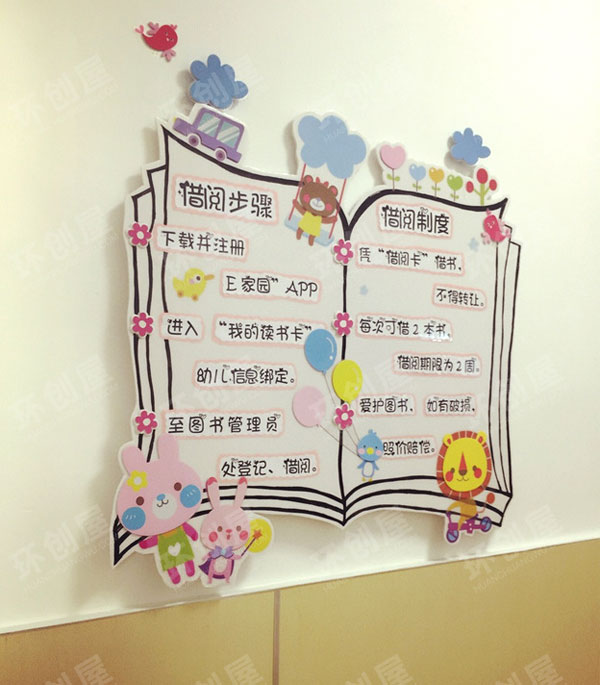 借阅步骤
下载并注册
E家园”APP
进入 “我的读书卡”
幼儿信息绑定。
至图书管理员
处登记、借阅。
借阅制度
凭“借阅卡”借书、
不得转让。
每次可借2本书、
借阅期限为2周。
爱护图书、如有破损、
照价赔偿。
环创屋